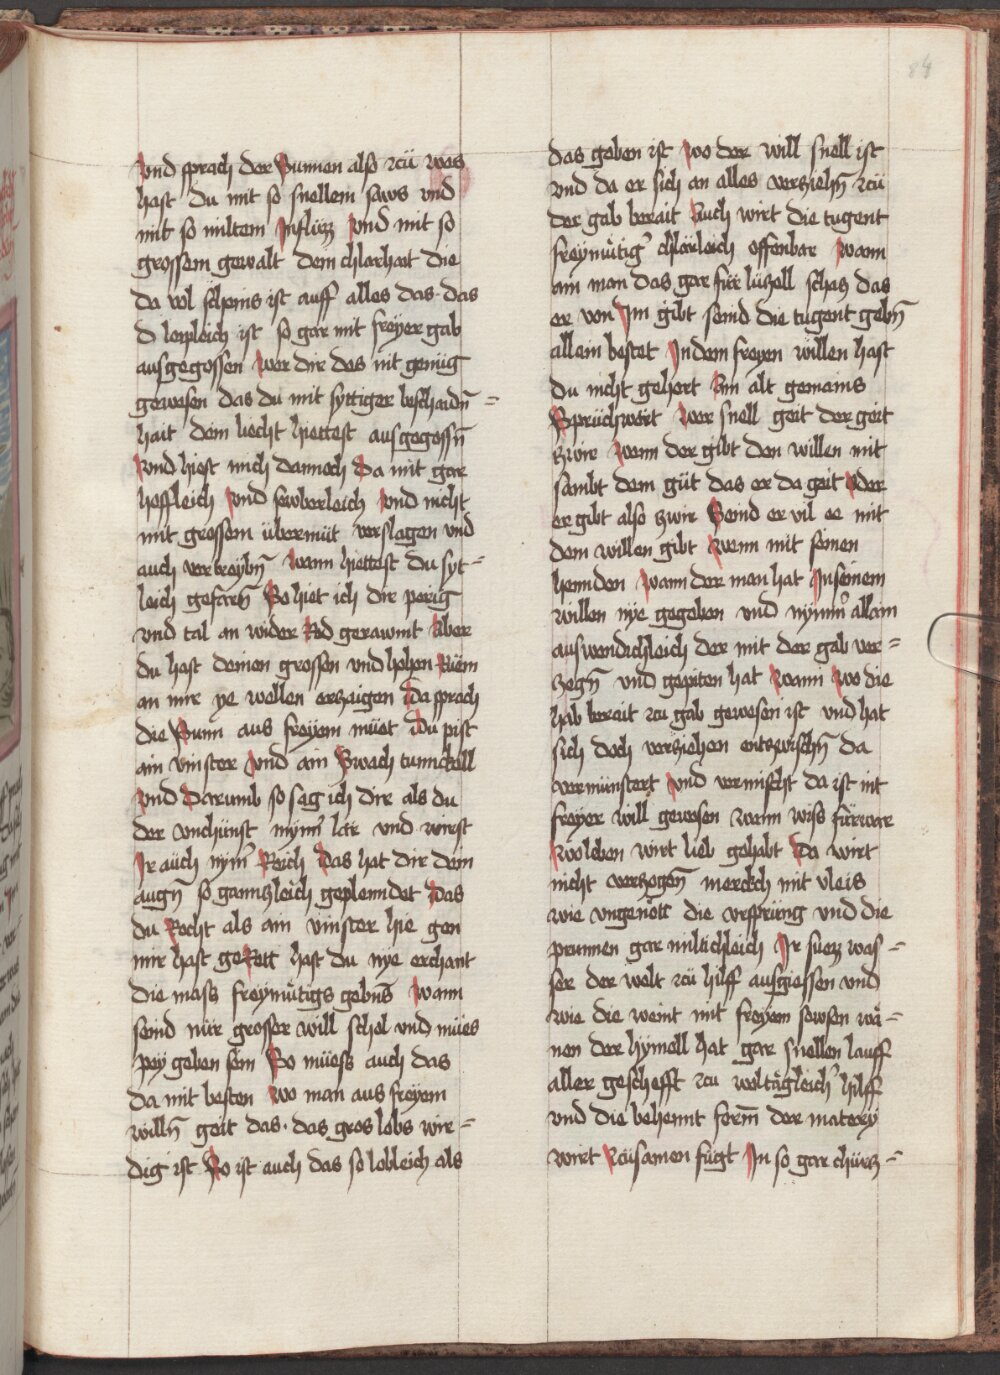 84
Vnd sprach der Sunnen also zcü was
hast du mit so snellem saws vnd
mit so miltem Jnfluzz Vnd mit so
grossem gewalt dem chlarhait die
da wol scheins ist auff alles das das
d leipleich ist so gar mit freyer gab
ausgegossen Wer dir des nit genüg
gewesen das du mit syttiger beschaidn̄ =
hait dein liecht hiettest ausgegossn̄
Vnd hiest mich dannoch Da mit gar
hoffleich Vnd sewberleich Vnd nicht
mit grossem übermüt verslagen vnd
auch vertreybn̄ Wann hiettest du syt =
leich gefarn̄ So hiet ich dir perig
vnd tal an wider Red gerawmt Aber
du hast deinen grossen vnd hohen Rüem
an mir ye wellen erzaigen Da sprach
die Sunn aus freyem müet Du pist
ain vinster Vnd ain Swach tunnckell
Vnd Darumb so sag ich dir als du
der vnchünst nymm̄ lär vnd wirst
Jr auch nym̄ Reich Das hat dir dein
augn̄ so gannczleich geplenndet Das
du Recht als ain vinster hie gen
mir hast geRett hast du nye erchant
die mass freymütigs gebns̄ Wann
seind nür grosser will schol vnd mües
pey geben sein So müess auch das
da mit besten Wo man aus freyem
willn̄ geit das das gros lobs wir =
dig ist So ist auch das so lobleich als
das geben ist Wo der will snell ist
vnd da er sich an alles verziehn̄ zcü
der gab berait Auch wirt die tugent
freymütig̉ chlärleich offenbar Wann
ain man das gar für lüczell schacz das
er von Jm gibt seind die tugent gebn̄
allain bestet Jn dem freyen willen hast
du nicht gehort Ain alt gemains
Sprüchwort Wer snell geit der geit
zwir Wenn der gibt den willen mit
sambt dem güt das er da geit Oder
er gibt also zwir Seind er vil ee mit
dem willen gibt Wenn mit seinen
hennden Wann der man hat Jn seinem
willen nye gegeben vnd nymm̄ allain
auswendichleich der mit der gab ver =
zogn̄ vnd gepiten hat Wann Wo die
hab berait zcu gab gewesen ist vnd hat
sich doch verziehen entzwischn̄ da
vermünstert Vnd vermischt da ist nit
freyer will gewesen Wann wiss fürwar
Wo leben wirt lieb gehabt Da wirt
nicht verzogen̄ merckch mit vleis
wie vngenött die vrsprüng vnd die
prunnen gar miltichleich Jr süezz was =
ser der welt zcü hilff ausgiessen vnd
wie die weint mit freyem sewsen wä =
nen der hymell hat gar snellen lauff
aller geschefft zcu weltägleich̉ hilff
vnd die behennt form̄ der matery
wirt Zcüsamen fügt Jn so gar chürcz =